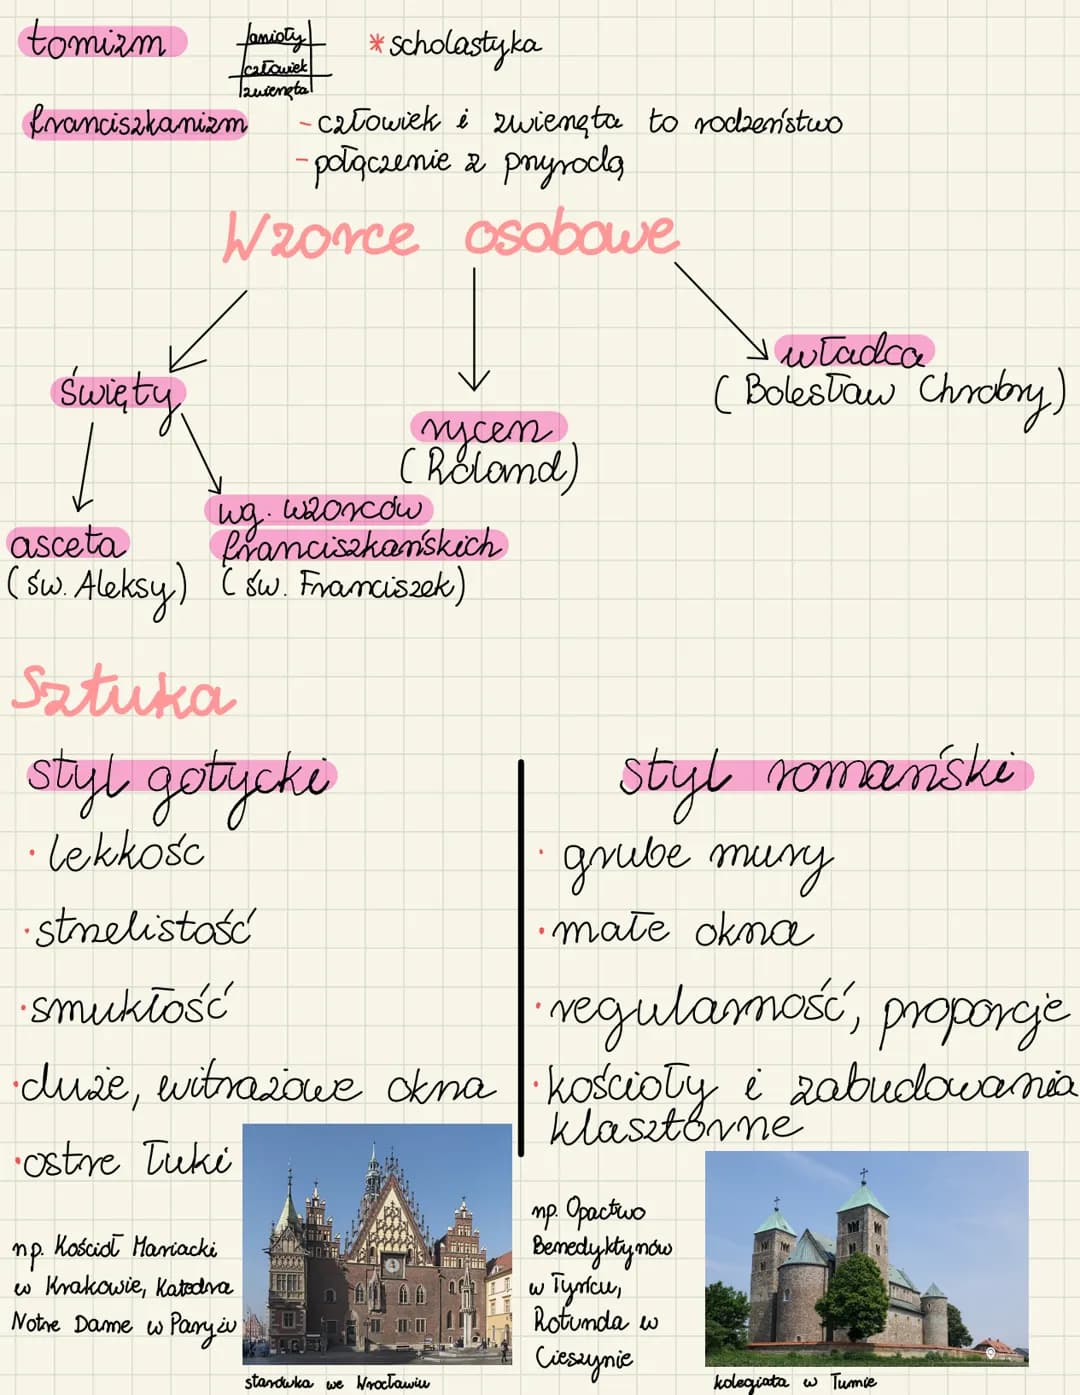 tomizm
anioły
człowiek
zwierzęta
* scholastyka
franciszkanizm
- człowiek i zwierzęta to rodzeństwo
- połączenie z przyrodą
Wzorce osobowe
święty
rycerz
(Roland)
władca
(Bolesław Chrobry)
asceta
(św. Aleksy)
wg. wzorców
franciszkańskich
(św. Franciszek)
Sztuka
styl gotycki
· lekkość
· strzelistość
· smukłość
· duże, witrażowe okna
· ostre łuki
np. Kościół Mariacki
w Krakowie, Katedra
Notre Dame w Paryżu
starówka we Wrocławiu
styl romański
· grube mury
· małe okna
· regularność, proporcje
· kościoły i zabudowania
klasztorne
np. Opactwo
Benedyktynów
w Tyńcu,
Rotunda w
Cieszynie
kolegiata w Tumie